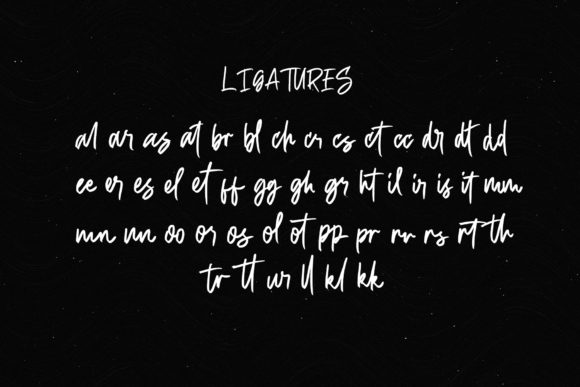 LIGATURES
al ar as at br bl ch cr cs ct cc dr dt dd
ee er es el et ff gg gh gr ht il ir is it mm
mn nn oo or os ol ot pp pr rr rs rt th
tr tt ur ll kl kk